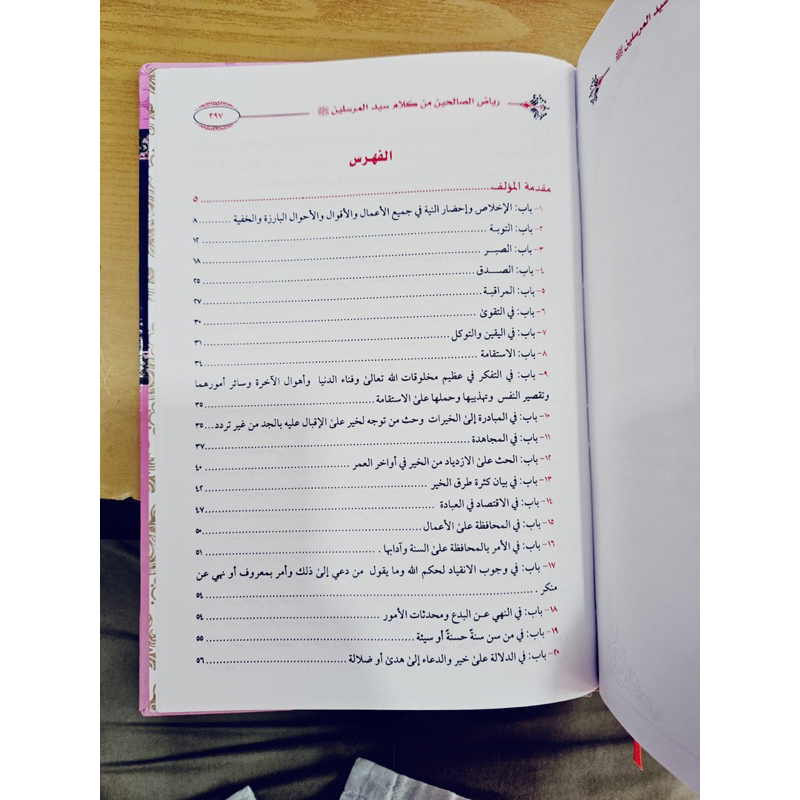 رياض الصالحين من كلام سيد المرسلين ﷺ ٣٩٧
الفهرس
مقدمة المؤلف ٥
١- باب: الإخلاص وإحضار النية في جميع الأعمال والأقوال والأحوال البارزة والخفية ٨
٢- باب: التوبة ١٢
٣- باب: الصبر ١٨
٤- باب: الصدق ٢٥
٥- باب: المراقبة ٢٧
٦- باب: في التقوى ٣٠
٧- باب: في اليقين والتوكل ٣١
٨- باب: الاستقامة ٣٤
٩- باب: في التفكر في عظيم مخلوقات الله تعالى وفناء الدنيا وأهوال الآخرة وسائر أمورهما
وتقصير النفس وتهذيبها وحملها على الاستقامة ٣٥
١٠- باب: في المبادرة إلى الخيرات وحث من توجه لخير على الإقبال عليه بالجد من غير تردد ٣٥
١١- باب: في المجاهدة ٣٧
١٢- باب: الحث على الازدياد من الخير في أواخر العمر ٤٠
١٣- باب: في بيان كثرة طرق الخير ٤٢
١٤- باب: في الاقتصاد في العبادة ٤٧
١٥- باب: في المحافظة على الأعمال ٥٠
١٦- باب: في الأمر بالمحافظة على السنة وآدابها ٥١
١٧- باب: في وجوب الانقياد لحكم الله وما يقول من دعي إلى ذلك وأمر بمعروف أو نهي عن
منكر ٥٤
١٨- باب: في النهي عن البدع ومحدثات الأمور ٥٤
١٩- باب: في من سن سنةً حسنةً أو سيئة ٥٥
٢٠- باب: في الدلالة على خير والدعاء إلى هدى أو ضلالة ٥٦
سيد المرسلين ﷺ